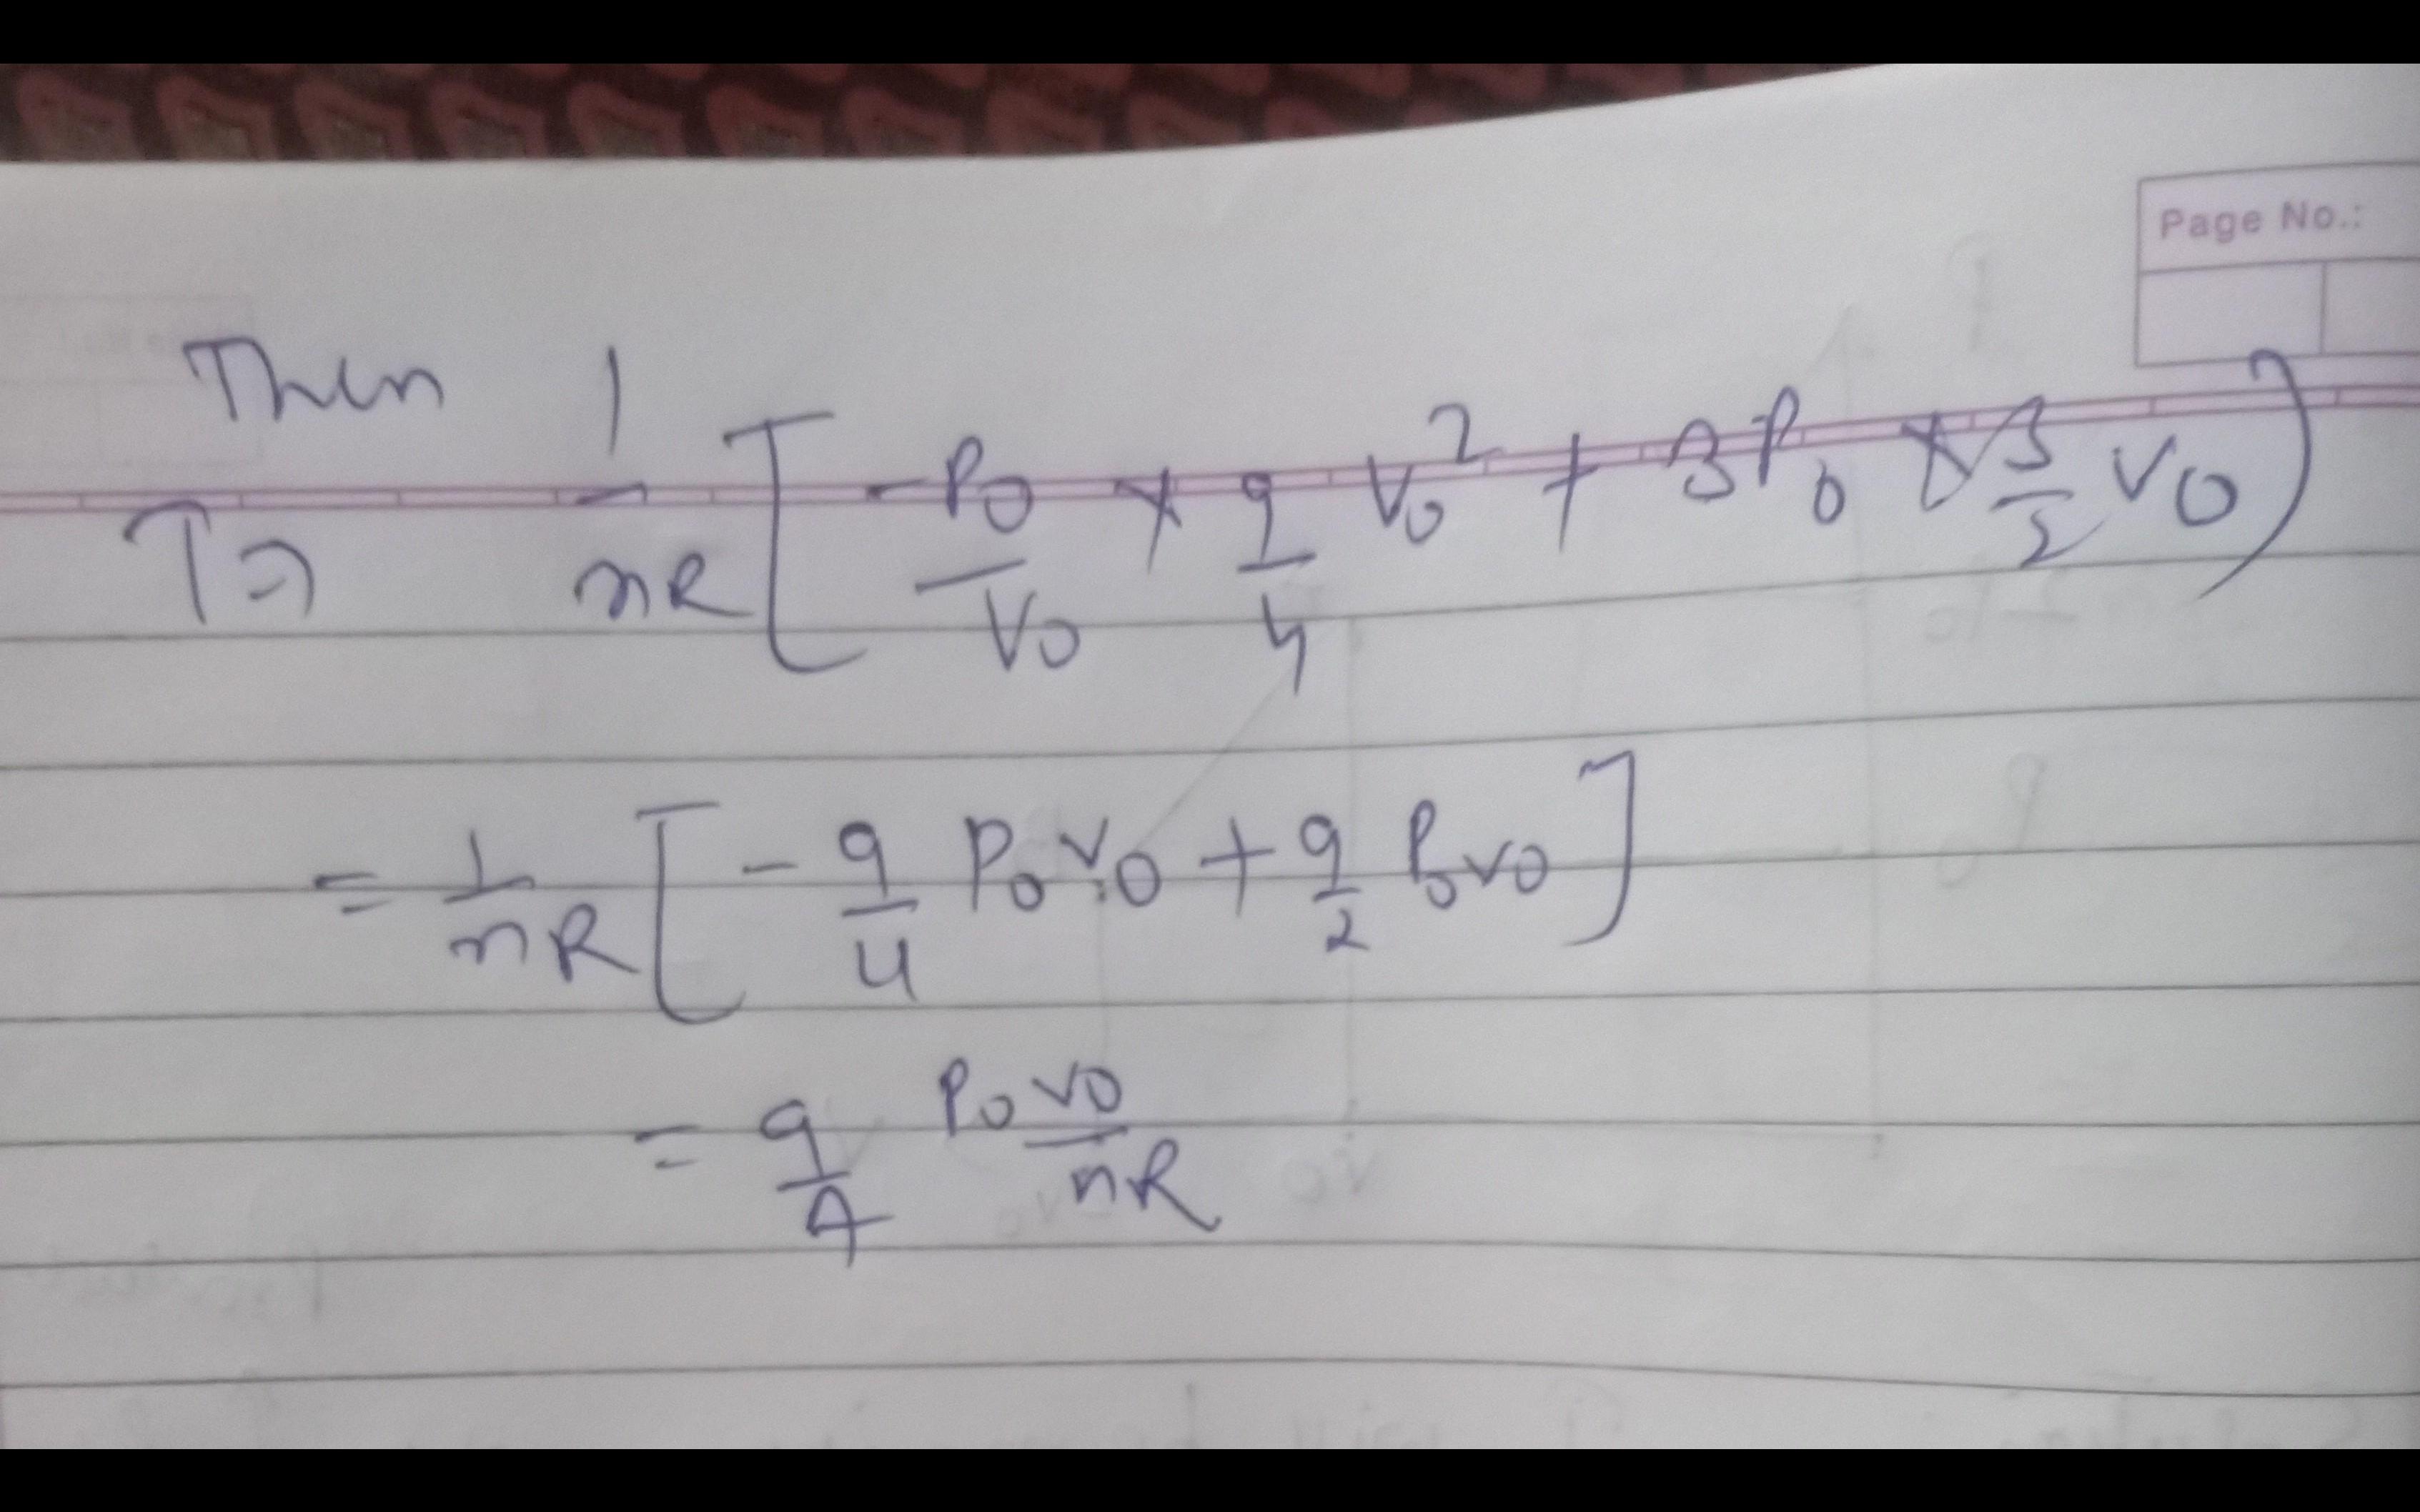 Page No.:
Then
T = 1/nR [ -P₀/V₀ × 9/4 V₀² + 3P₀ × 3/2 V₀ )
= 1/nR [ - 9/4 P₀V₀ + 9/2 P₀V₀ ]
= 9/4 P₀V₀/nR